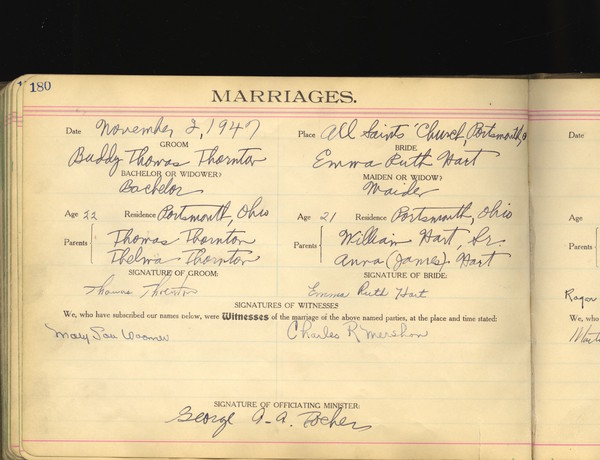 180
MARRIAGES.
Date November 2, 1947 Place All Saints' Church, Portsmouth, O Date
GROOM BRIDE
Buddy Thomas Thornton Emma Ruth Hart
BACHELOR OR WIDOWER? MAIDEN OR WIDOW?
Bachelor Maiden
Age 22 Residence Portsmouth, Ohio Age 21 Residence Portsmouth, Ohio Age
Parents Thomas Thornton Parents William Hart, Sr. Parents
Thelma Thornton Anna (James) Hart
SIGNATURE OF GROOM: SIGNATURE OF BRIDE:
Thomas Thornton Emma Ruth Hart
SIGNATURES OF WITNESSES
We, who have subscribed our names below, were Witnesses of the marriage of the above named parties, at the place and time stated: We, who
Mary Charles R. Mershon
SIGNATURE OF OFFICIATING MINISTER:
George A. A.